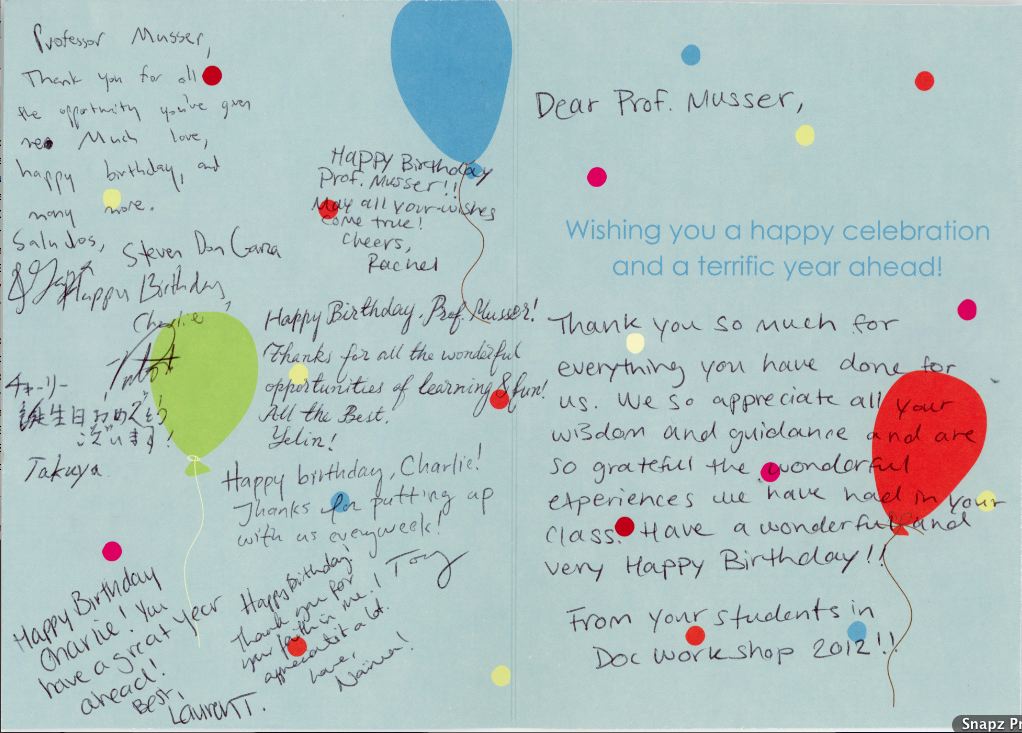 Professor Musser,
Thank you for all
the opportunity you've given
me. Much love,
happy birthday, and
many more.
Saludos,
Steven Don Garza
Happy Birthday,
Charlie
チャーリー
誕生日おめでとう
ございます!
Takuya
Happy Birthday
Prof. Musser!!
May all your wishes
come true!
Cheers,
Rachel
Happy Birthday, Prof. Musser!
Thanks for all the wonderful
opportunities of learning & fun!
All the Best.
Yelin!
Happy birthday, Charlie!
Thanks for putting up
with us everyweek!
Tony
Happy Birthday
Charlie! You
have a great year
ahead!
Best,
Lauren T.
Happy Birthday!
Thank you for
your faith in me!
appreciate it a lot.
Love,
Naima!
Dear Prof. Musser,
Wishing you a happy celebration
and a terrific year ahead!
Thank you so much for
everything you have done for
us. We so appreciate all your
wisdom and guidance and are
so grateful the wonderful
experiences we have had in your
class. Have a wonderful and
very Happy Birthday!!
From your students in
Doc Workshop 2012!!
Snapz Pr